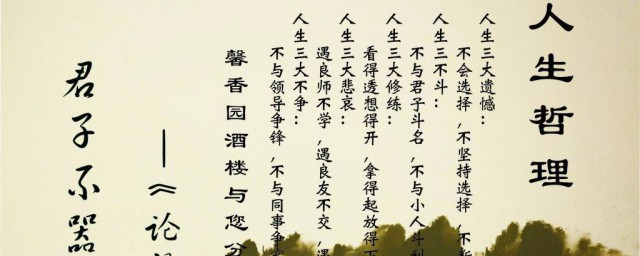 人生哲理
人生三大遗憾：
不会选择，不坚持选择，不
人生三不斗：
不与君子斗名，不与小人斗利
人生三大修练：
看得透想得开，拿得起放得下
人生三大悲哀：
遇良师不学，遇良友不交，遇
人生三大不争：
不与领导争锋，不与同事争
馨香园酒楼与您分
—《论
君子不器